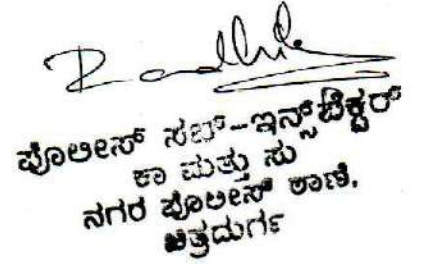 ಪೊಲೀಸ್ ಸಬ್-ಇನ್ಸ್‌ಪೆಕ್ಟರ್
ಕಾ ಮತ್ತು ಸು
ನಗರ ಪೊಲೀಸ್ ಠಾಣೆ,
ಚಿತ್ರದುರ್ಗ